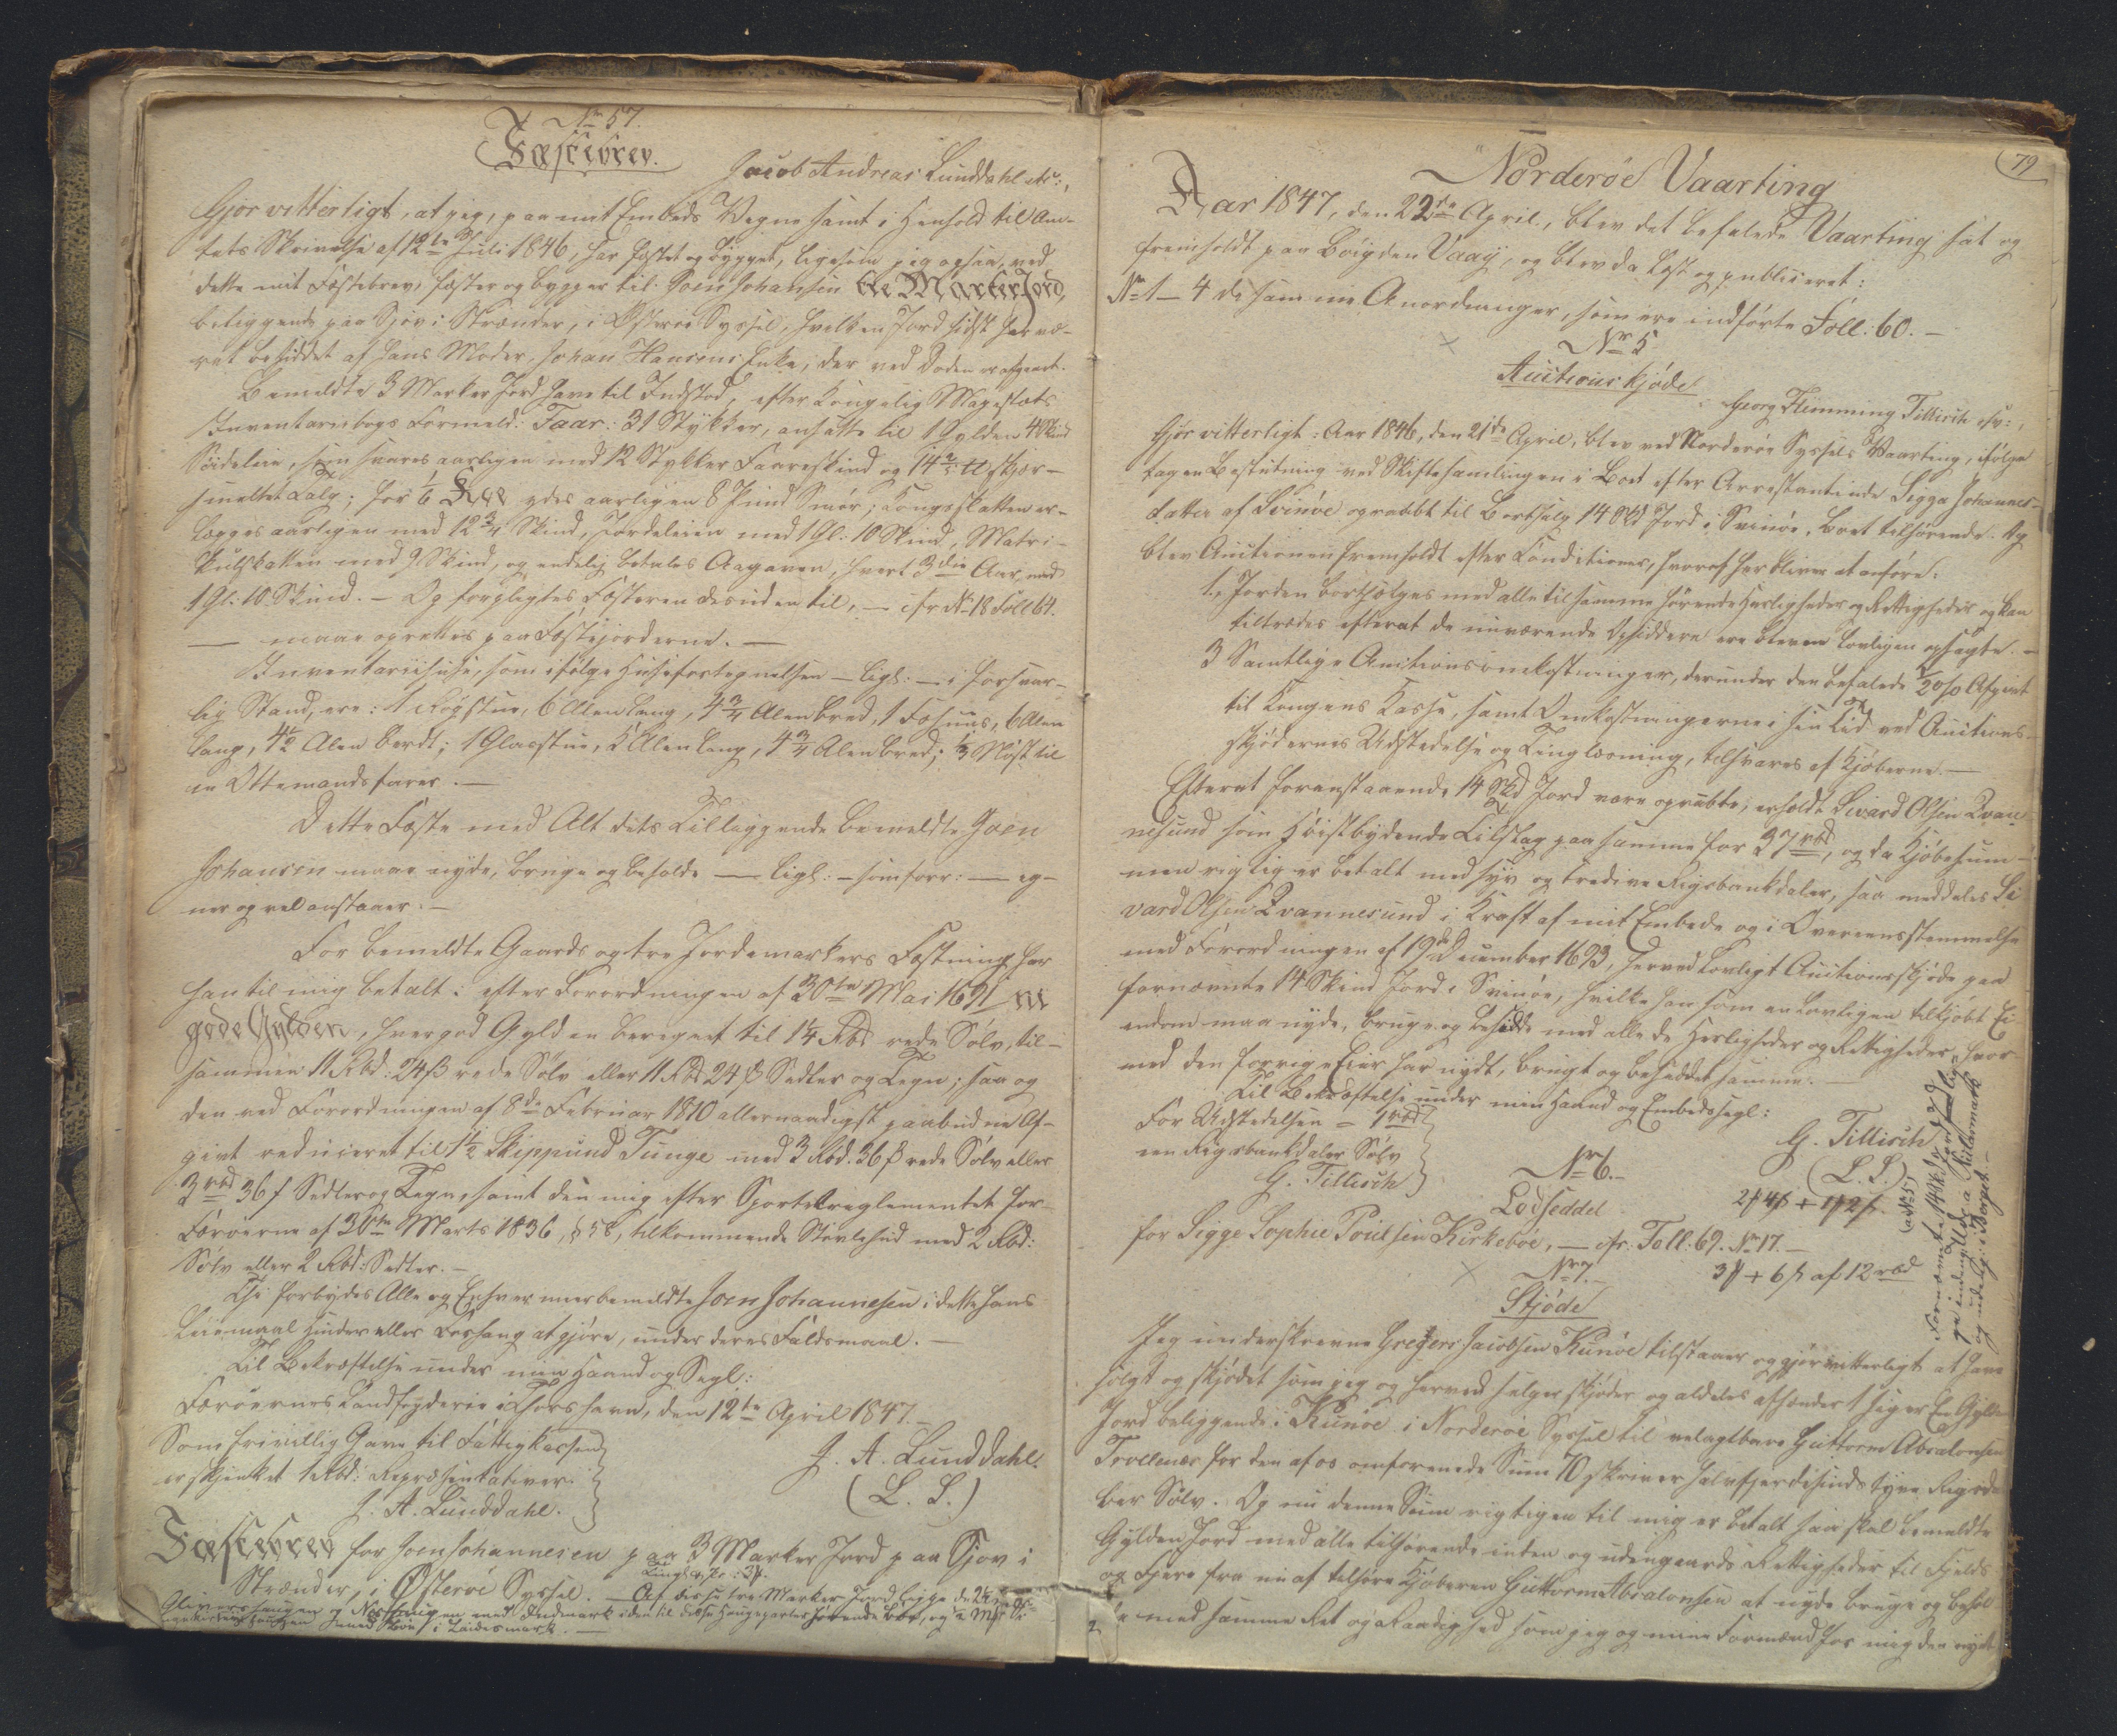 No 57.
Fæstebrev.
Jacob Andreas Lunddahl etc:,
Gjør vitterligt, at jeg, paa mit Embeds Vegne samt i Henhold til Am-
tets Skrivelse af 12te Juli 1846, har fæstet og bygget, ligesom jeg ogsaa, ved
dette mit Fæstebrev, fæster og bygger til Joen Johansen tre Marker Jord,
beliggende paa Sjov i Strænder, i Østerøe Syssel, hvilken Jord sidst har væ-
ret besiddet af hans Moder, Johan Hansens Enke, der ved Døden er afgaaet.
Bemeldte 3 Marker Jord have til Indstød, efter Kongelig Majestæts
Inventariebogs Formeld: Faar: 31 Stykker, ansatte til 1 Gylden 4 Skind
Søideleie, som svares aarligen med 12 Stykker Faareskind og 14 2/5 ℔ skjær-
smeltet Talg; for 1/6 Koe ydes aarligen 8 Pund Smør; Kongsskatten er-
lægges aarligen med 12 3/4 Skind, Jordeleien med 1 Gl: 10 Skind, Matri-
kulskatten med 9 Skind, og endelig betales Aagaven, hvert 3die Aar, med
1 Gl: 10 Skind. — Og forpligtes Fæsteren desuden til, — cfr No 18 Foll 64.
— maae oprettes paa Fæstejorderne. —
Inventariihuse, som ifølge Husefortegnelsen — ligl: — i forsvar-
lig Stand, ere: 1 Røgstue, 6 Alen lang, 4 3/4 Alen bred, 1 Fæhuus, 6 Alen
lang, 4 1/2 Alen bredt; 1 Glasstue, 5 Alen lang, 4 3/4 Alen bred; 1/3 Nøst til
en Ottemandsfarer. —
Dette Fæste med Alt dets Tilliggende bemeldte Joen
Johansen maae nyde, bruge og beholde — ligl: — som forr: — eg-
ner og vel anstaaer. —
For bemeldte Gaards og tre Jordemarkers Fæstning har
han til mig betalt: efter Forordningen af 30te Mai 1691 ni
gode Gylden, hver god Gylden beregnet til 1 1/4 Rbd rede Sølv, til-
sammen 11 Rbd. 24 ß rede Sølv eller 11 Rbd 24 ß Sedler og Tegn; saa og
den ved Forordningen af 8de Februar 1810 allernaadigst paabudne Af-
givt reduceret til 1 1/2 Skippund Tunge med 3 Rbd. 36 ß rede Sølv eller
3 rbd 36 ß Sedler og Tegn, samt den mig efter Sportelreglementet for
Færøerne af 30te Marts 1836, § 58, tilkommende Støvlehud med 2 Rbd:
Sølv eller 2 Rbd: Sedler. —
Thi forbydes Alle og Enhver mærbemeldte Joen Johannesen i dette hans
Leiemaal Hinder eller Forfang at gjøre, under deres Faldsmaal. —
Til Bekræftelse under min Haand og Segl:
Færøernes Landfogderie i Thorshavn, den 12te April 1847. —
Som frivillig Gave til Fattigkassen
er skjenket 1 Rbd: Repræsentativer.
J. A. Lunddahl.
J. A. Lunddahl.
(L. S.)
Fæstebrev for Joen Johannesen paa 3 Marker Jord paa Sjov i
Strænder, i Østerøe Syssel. — Af disse tre Marker Jord ligge de 2
med Indmark i den til disse Haugeparter hørende Bøe, og
79
Norderøe Vaarting
Aar 1847, den 22de April, blev det befalede Vaarting sat og
fremholdt paa Bøigden Vaag, og blev da læst og publiceret:
No 1 — 4 de samme Anordninger, som ere indførte Foll: 60. —
No 5
Auctionskjøde.
Georg Flemming Tillisch etc:,
Gjør vitterligt: Aar 1846, den 21de April, blev ved Norderøe Syssels Vaarting, ifølge
tagen Bestutning ved Skiftesamlingen i Boet efter Arrestantinde Sigga Johannes-
datter af Svinøe opraabt til Bortsalg 14 Skd Jord i Svinøe, Boet tilhørende. Og
blev Auctionen fremholdt efter Conditioner, hvoraf her bliver at anføre:
1, Jorden bortsælges med alle til samme hørende Herligheder og Rettigheder og kan
tiltrædes efterat de nuværende Opsiddere ere blevne lovligen opsagte. —
3 Samtlige Auctionsomkostninger, derunder den befalede 1/2 o/o Afgivt
til Kongens Kasse, samt Omkostningerne i sin Tid ved Auctions-
skjødernes Udstedelse og Tinglæsning, tilsvares af Kjøberne. —
Efterat foranstaaende 14 Skd Jord vare opraabte, erholdt Sivard Olsen Qvan-
nesund som Høistbydende Tilslag paa samme for 37 rbd, og da Kjøbesum-
men rigtig er betalt med syv og tredive Rigsbankdaler, saa meddeles Si
vard Olsen Qvannesund i Kraft af mit Embede og i Overeensstemmelse
med Forordningen af 19de December 1693, herved lovligt Auctionsskjøde paa
fornævnte 14 Skind Jord i Svinøe, hvilke han som en lovligen tilkjøbt Ei
endom maa nyde, bruge og besidde med alle de Herligheder og Rettigheder, hvor-
med den forrige Eier har nydt, brugt og besiddet samme. —
Til Bekræftelse under min Haand og Embedssegl:
For Udstedelsen = 1 rbd
een Rigsbankdaler Sølv
G. Tillisch
G. Tillisch
(L. S.)
No 6. —
Lodseddel
for Sigge Sophie Poulsen Kirkebøe, — cfr: Foll: 69. No 17. —
3 ß + 6 ß af 12 rbd
(ad No 5)
Fornævnte 14 Skd Jord
No 7. —
Skjøde
Jeg underskrevne Gregers Jacobsen Kunøe tilstaaer og gjør vitterligt at have
solgt og skjødet som jeg og herved sælger skjøder og aldeles afhænder 1 siger En Gylden
Jord beliggende i Kunøe i Norderøe Syssel til velagtbare Guttorm Absalonsen
Trøllenæs for den af os omforenede Sum 70 skriver halvfjerdsinds tyve Rigsda
ler Sølv. Og nu denne Sum rigtigen til mig er betalt saa skal bemeldte
Gylden Jord med alle tilhørende inden og udengaards Rettigheder til Fjelds
og Fjære fra nu af tilhøre Kjøberen Guttorm Absalonsen at nyde bruge og behol
de med samme Ret og Raadighed som jeg og mine Formænd for mig den nydt